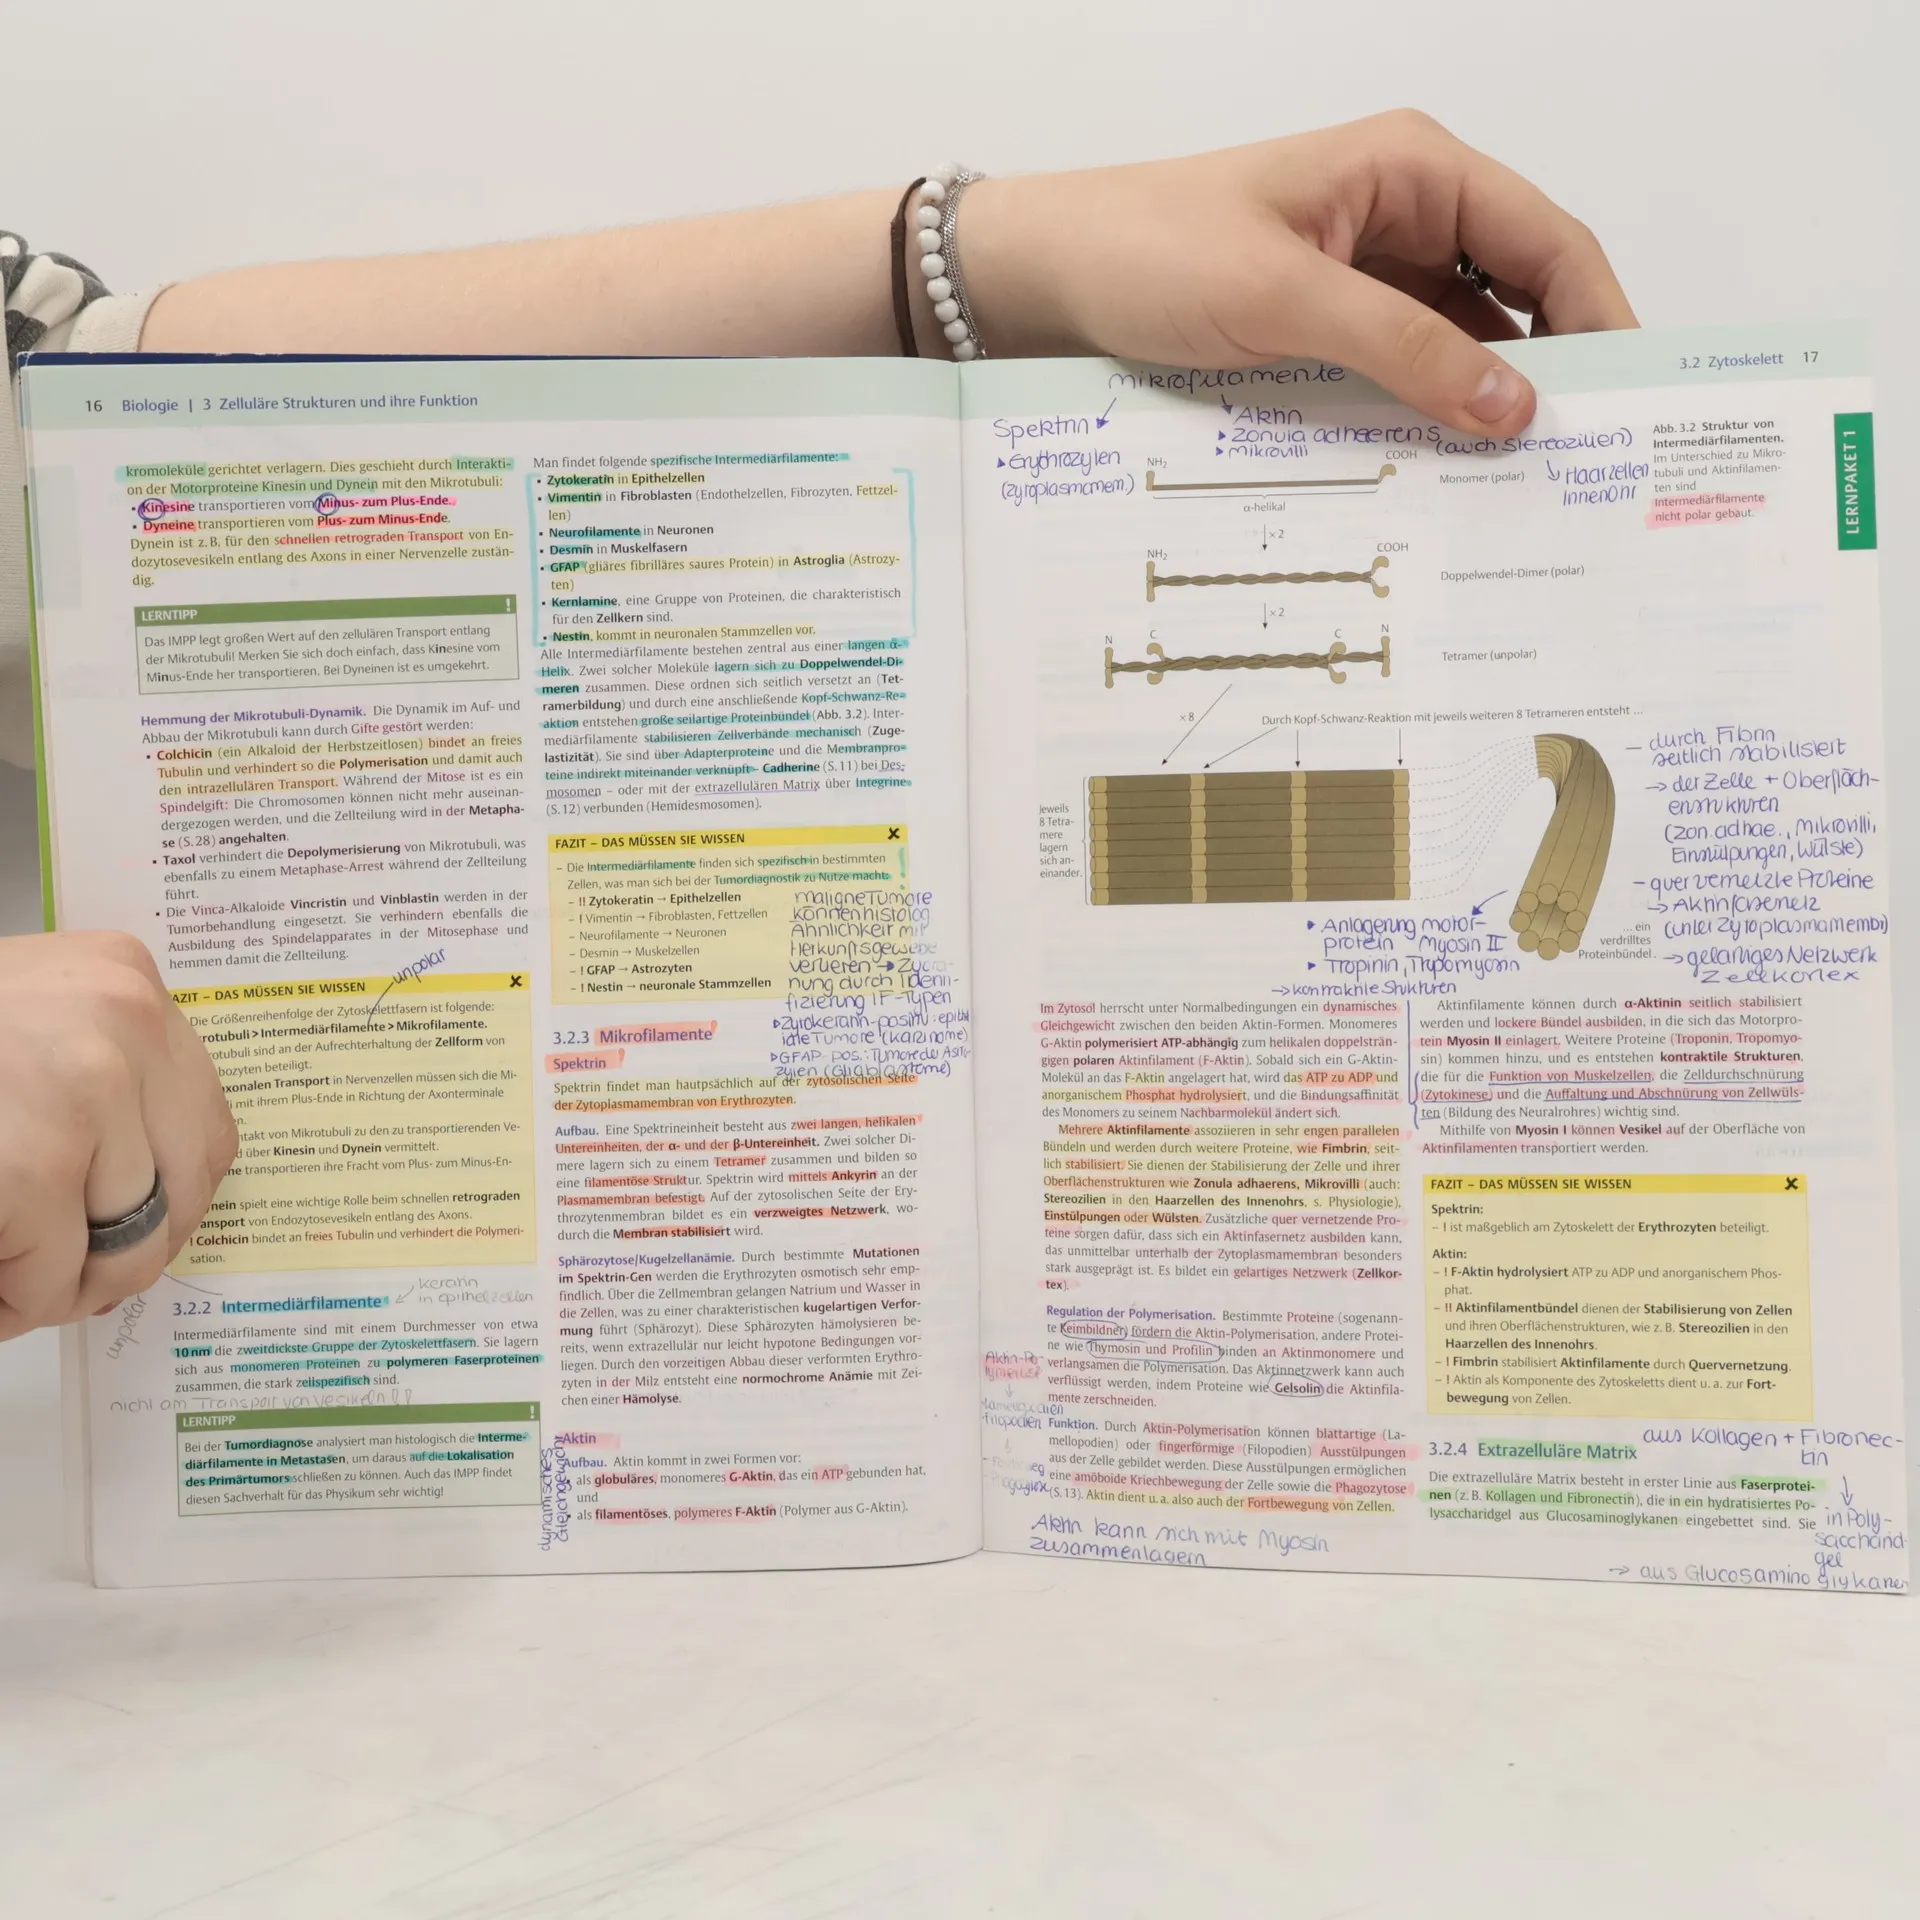 16 Biologie | 3 Zelluläre Strukturen und ihre Funktion
kromoleküle gerichtet verlagern. Dies geschieht durch Interakti-
on der Motorproteine Kinesin und Dynein mit den Mikrotubuli:
▪ Kinesine transportieren vom Minus- zum Plus-Ende.
▪ Dyneine transportieren vom Plus- zum Minus-Ende.
Dynein ist z. B. für den schnellen retrograden Transport von En-
dozytosevesikeln entlang des Axons in einer Nervenzelle zustän-
dig.
LERNTIPP !
Das IMPP legt großen Wert auf den zellulären Transport entlang
der Mikrotubuli! Merken Sie sich doch einfach, dass Kinesine vom
Minus-Ende her transportieren. Bei Dyneinen ist es umgekehrt.
Hemmung der Mikrotubuli-Dynamik. Die Dynamik im Auf- und
Abbau der Mikrotubuli kann durch Gifte gestört werden:
▪ Colchicin (ein Alkaloid der Herbstzeitlosen) bindet an freies
Tubulin und verhindert so die Polymerisation und damit auch
den intrazellulären Transport. Während der Mitose ist es ein
Spindelgift: Die Chromosomen können nicht mehr auseinan-
dergezogen werden, und die Zellteilung wird in der Metapha-
se (S. 28) angehalten.
▪ Taxol verhindert die Depolymerisierung von Mikrotubuli, was
ebenfalls zu einem Metaphase-Arrest während der Zellteilung
führt.
▪ Die Vinca-Alkaloide Vincristin und Vinblastin werden in der
Tumorbehandlung eingesetzt. Sie verhindern ebenfalls die
Ausbildung des Spindelapparates in der Mitosephase und
hemmen damit die Zellteilung.
unpolar
AZIT – DAS MÜSSEN SIE WISSEN
Die Größenreihenfolge der Zytoskelettfasern ist folgende:
rotubuli > Intermediärfilamente > Mikrofilamente.
otubuli sind an der Aufrechterhaltung der Zellform von
bozyten beteiligt.
xonalen Transport in Nervenzellen müssen sich die Mi-
i mit ihrem Plus-Ende in Richtung der Axonterminale
n.
ntakt von Mikrotubuli zu den zu transportierenden Ve-
d über Kinesin und Dynein vermittelt.
ne transportieren ihre Fracht vom Plus- zum Minus-En-
nein spielt eine wichtige Rolle beim schnellen retrograden
ansport von Endozytosevesikeln entlang des Axons.
! Colchicin bindet an freies Tubulin und verhindert die Polymeri-
sation.
unpolar
3.2.2 Intermediärfilamente
keratin
in epithelzellen
Intermediärfilamente sind mit einem Durchmesser von etwa
10 nm die zweitdickste Gruppe der Zytoskelettfasern. Sie lagern
sich aus monomeren Proteinen zu polymeren Faserproteinen
zusammen, die stark zellspezifisch sind.
nicht am Transport von Vesikeln!!
LERNTIPP !
Bei der Tumordiagnose analysiert man histologisch die Interme-
diärfilamente in Metastasen, um daraus auf die Lokalisation
des Primärtumors schließen zu können. Auch das IMPP findet
diesen Sachverhalt für das Physikum sehr wichtig!
Man findet folgende spezifische Intermediärfilamente:
▪ Zytokeratin in Epithelzellen
▪ Vimentin in Fibroblasten (Endothelzellen, Fibrozyten, Fettzel-
len)
▪ Neurofilamente in Neuronen
▪ Desmin in Muskelfasern
▪ GFAP (gliäres fibrilläres saures Protein) in Astroglia (Astrozy-
ten)
▪ Kernlamine, eine Gruppe von Proteinen, die charakteristisch
für den Zellkern sind.
▪ Nestin, kommt in neuronalen Stammzellen vor.
Alle Intermediärfilamente bestehen zentral aus einer langen α-
Helix. Zwei solcher Moleküle lagern sich zu Doppelwendel-Di-
meren zusammen. Diese ordnen sich seitlich versetzt an (Tet-
ramerbildung) und durch eine anschließende Kopf-Schwanz-Re-
aktion entstehen große seilartige Proteinbündel (Abb. 3.2). Inter-
mediärfilamente stabilisieren Zellverbände mechanisch (Zuge-
lastizität). Sie sind über Adapterproteine und die Membranpro-
teine indirekt miteinander verknüpft – Cadherine (S. 11) bei Des-
mosomen – oder mit der extrazellulären Matrix über Integrine
(S. 12) verbunden (Hemidesmosomen).
FAZIT – DAS MÜSSEN SIE WISSEN
– Die Intermediärfilamente finden sich spezifisch in bestimmten
Zellen, was man sich bei der Tumordiagnostik zu Nutze macht:
– !! Zytokeratin → Epithelzellen
– ! Vimentin → Fibroblasten, Fettzellen
– Neurofilamente → Neuronen
– Desmin → Muskelzellen
– ! GFAP → Astrozyten
– ! Nestin → neuronale Stammzellen
maligne Tumore
können histolog
Ähnlichkeit mit
Herkunftsgewebe
verlieren →
nung durch Identi-
fizierung IF-Typen
▹Zytokeratin-positiv: epithe
iale Tumore (karzinome)
▹GFAP-pos.: Tumore der Astro-
zyten (Glioblastome)
3.2.3 Mikrofilamente
Spektrin
Spektrin findet man hautpsächlich auf der zytosolischen Seite
der Zytoplasmamembran von Erythrozyten.
Aufbau. Eine Spektrineinheit besteht aus zwei langen, helikalen
Untereinheiten, der α- und der β-Untereinheit. Zwei solcher Di-
mere lagern sich zu einem Tetramer zusammen und bilden so
eine filamentöse Struktur. Spektrin wird mittels Ankyrin an der
Plasmamembran befestigt. Auf der zytosolischen Seite der Ery-
throzytenmembran bildet es ein verzweigtes Netzwerk, wo-
durch die Membran stabilisiert wird.
Sphärozytose/Kugelzellanämie. Durch bestimmte Mutationen
im Spektrin-Gen werden die Erythrozyten osmotisch sehr emp-
findlich. Über die Zellmembran gelangen Natrium und Wasser in
die Zellen, was zu einer charakteristischen kugelartigen Verfor-
mung führt (Sphärozyt). Diese Sphärozyten hämolysieren be-
reits, wenn extrazellulär nur leicht hypotone Bedingungen vor-
liegen. Durch den vorzeitigen Abbau dieser verformten Erythro-
zyten in der Milz entsteht eine normochrome Anämie mit Zei-
chen einer Hämolyse.
Aktin
Aufbau. Aktin kommt in zwei Formen vor:
▪ als globuläres, monomeres G-Aktin, das ein ATP gebunden hat,
und
▪ als filamentöses, polymeres F-Aktin (Polymer aus G-Aktin).
dynamisches
Gleichgewicht
3.2 Zytoskelett 17
LERNPAKET 1
mikrofilamente
Spektrin
▸Erythrozyten
(zytoplasmamem.)
Aktin
▸ Zonula adhaerens
▸ mikrovilli
(auch Stereozilien)
↓ Haarzellen
Innenohr
NH₂
COOH
Monomer (polar)
α-helikal
×2
NH₂
COOH
Doppelwendel-Dimer (polar)
×2
N C C N
Tetramer (unpolar)
×8
Durch Kopf-Schwanz-Reaktion mit jeweils weiteren 8 Tetrameren entsteht ...
Jeweils
8 Tetra-
mere
lagern
sich an-
einander.
... ein
verdrilltes
Proteinbündel.
Abb. 3.2 Struktur von
Intermediärfilamenten.
Im Unterschied zu Mikro-
tubuli und Aktinfilamen-
ten sind
Intermediärfilamente
nicht polar gebaut.
– durch Fibrin
seitlich stabilisiert
→ der Zelle + Oberfläch-
enstrukturen
(zon. adhae., Mikrovilli,
Einstülpungen, Wülste)
– quervernetzte Proteine
→ Aktinfasernetz
(unter Zytoplasmamembr)
→ gelartiges Netzwerk
Zellkortex
▸ Anlagerung motor-
protein Myosin II
▸ Tropinin, Tropomyosin
→ kontraktile Strukturen
Im Zytosol herrscht unter Normalbedingungen ein dynamisches
Gleichgewicht zwischen den beiden Aktin-Formen. Monomeres
G-Aktin polymerisiert ATP-abhängig zum helikalen doppelsträn-
gigen polaren Aktinfilament (F-Aktin). Sobald sich ein G-Aktin-
Molekül an das F-Aktin angelagert hat, wird das ATP zu ADP und
anorganischem Phosphat hydrolysiert, und die Bindungsaffinität
des Monomers zu seinem Nachbarmolekül ändert sich.
Mehrere Aktinfilamente assoziieren in sehr engen parallelen
Bündeln und werden durch weitere Proteine, wie Fimbrin, seit-
lich stabilisiert. Sie dienen der Stabilisierung der Zelle und ihrer
Oberflächenstrukturen wie Zonula adhaerens, Mikrovilli (auch:
Stereozilien in den Haarzellen des Innenohrs, s. Physiologie),
Einstülpungen oder Wülsten. Zusätzliche quer vernetzende Pro-
teine sorgen dafür, dass sich ein Aktinfasernetz ausbilden kann,
das unmittelbar unterhalb der Zytoplasmamembran besonders
stark ausgeprägt ist. Es bildet ein gelartiges Netzwerk (Zellkor-
tex).
Regulation der Polymerisation. Bestimmte Proteine (sogenann-
te Keimbildner) fördern die Aktin-Polymerisation, andere Protei-
ne wie Thymosin und Profilin binden an Aktinmonomere und
verlangsamen die Polymerisation. Das Aktinnetzwerk kann auch
verflüssigt werden, indem Proteine wie Gelsolin die Aktinfila-
mente zerschneiden.
Funktion. Durch Aktin-Polymerisation können blattartige (La-
mellopodien) oder fingerförmige (Filopodien) Ausstülpungen
aus der Zelle gebildet werden. Diese Ausstülpungen ermöglichen
eine amöboide Kriechbewegung der Zelle sowie die Phagozytose
(S. 13). Aktin dient u. a. also auch der Fortbewegung von Zellen.
Aktin-Po-
↓
-Filopodien
Aktin kann sich mit Myosin
zusammenlagern
Aktinfilamente können durch α-Aktinin seitlich stabilisiert
werden und lockere Bündel ausbilden, in die sich das Motorpro-
tein Myosin II einlagert. Weitere Proteine (Troponin, Tropomyo-
sin) kommen hinzu, und es entstehen kontraktile Strukturen,
die für die Funktion von Muskelzellen, die Zelldurchschnürung
(Zytokinese) und die Auffaltung und Abschnürung von Zellwüls-
ten (Bildung des Neuralrohres) wichtig sind.
Mithilfe von Myosin I können Vesikel auf der Oberfläche von
Aktinfilamenten transportiert werden.
FAZIT – DAS MÜSSEN SIE WISSEN
Spektrin:
– ! ist maßgeblich am Zytoskelett der Erythrozyten beteiligt.
Aktin:
– ! F-Aktin hydrolysiert ATP zu ADP und anorganischem Phos-
phat.
– !! Aktinfilamentbündel dienen der Stabilisierung von Zellen
und ihren Oberflächenstrukturen, wie z. B. Stereozilien in den
Haarzellen des Innenohrs.
– ! Fimbrin stabilisiert Aktinfilamente durch Quervernetzung.
– ! Aktin als Komponente des Zytoskeletts dient u. a. zur Fort-
bewegung von Zellen.
3.2.4 Extrazelluläre Matrix
aus Kollagen + Fibronec-
tin
Die extrazelluläre Matrix besteht in erster Linie aus Faserprotei-
nen (z. B. Kollagen und Fibronectin), die in ein hydratisiertes Po-
lysaccharidgel aus Glucosaminoglykanen eingebettet sind. Sie
↓
in Poly-
saccharid-
gel
→ aus Glucosaminoglykanen